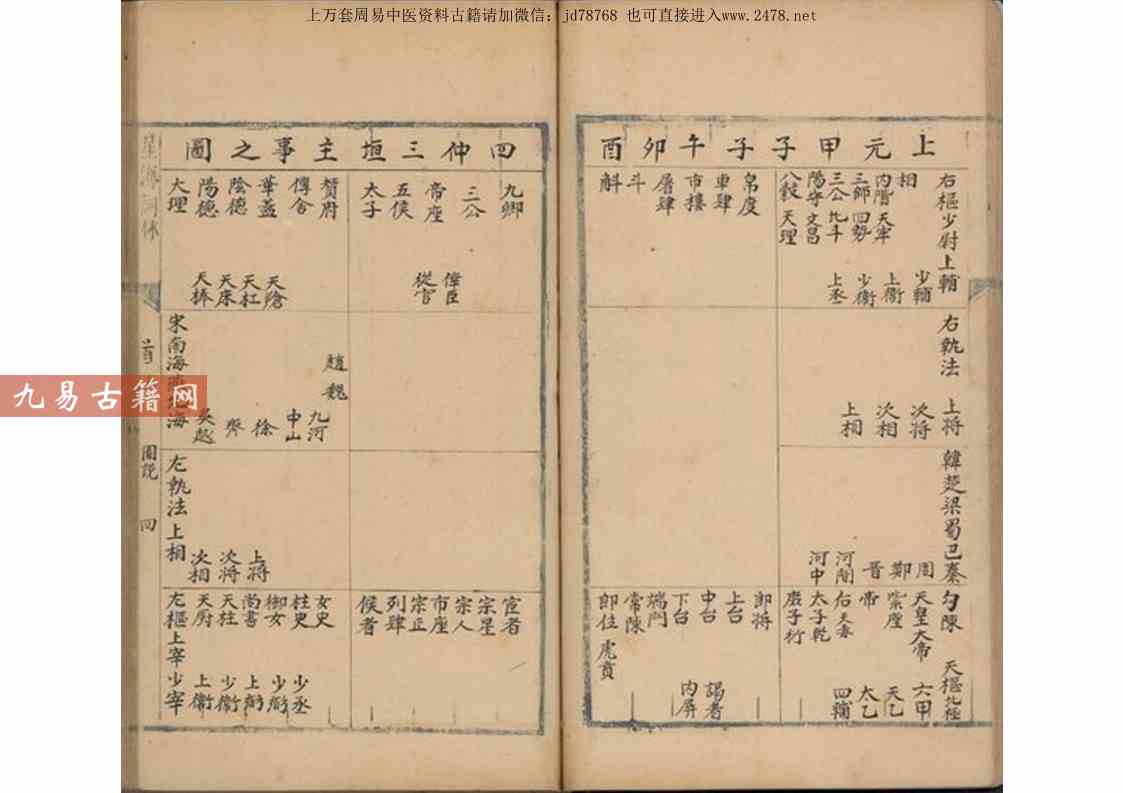 上万套周易中医资料古籍请加微信：jd78768 也可直接进入www.2478.net
上元甲子子午卯酉
右樞少尉上輔
相
內階 天牢
三師 四勢
三公 北斗
陽守 文昌
八穀 天理
少輔
上衛
少衛
上丞
帛度
車肆
市樓
屠肆
斗
斛
右執法
上將
次將
次相
上相
韓楚梁蜀巴秦
周
鄭
晉
河間
河中
勾陳 天樞北極
天皇大帝
紫座
帝
太子
庶子
六甲
天乙
太乙
四輔
郎將
上台
中台
下台
端門
常陳
郎位 虎賁
謁者
內屏
四仲三垣主事之圖
九卿
三公
帝座
五侯
太子
從官
傳舍
華蓋
陰德
陽德
大理
天杠
天床
天棓
趙
魏
九河
中山
徐
齊
吳越
宋南海
海
左執法上相
上將
次將
次相
宦者
宗星
宗人
市座
宗正
列肆
侯者
女史
柱史
御女
尚書
天柱
天厨
左樞上宰少宰
少丞
少弼
上弼
少衛
上衛
首
圖說
四
九易古籍网